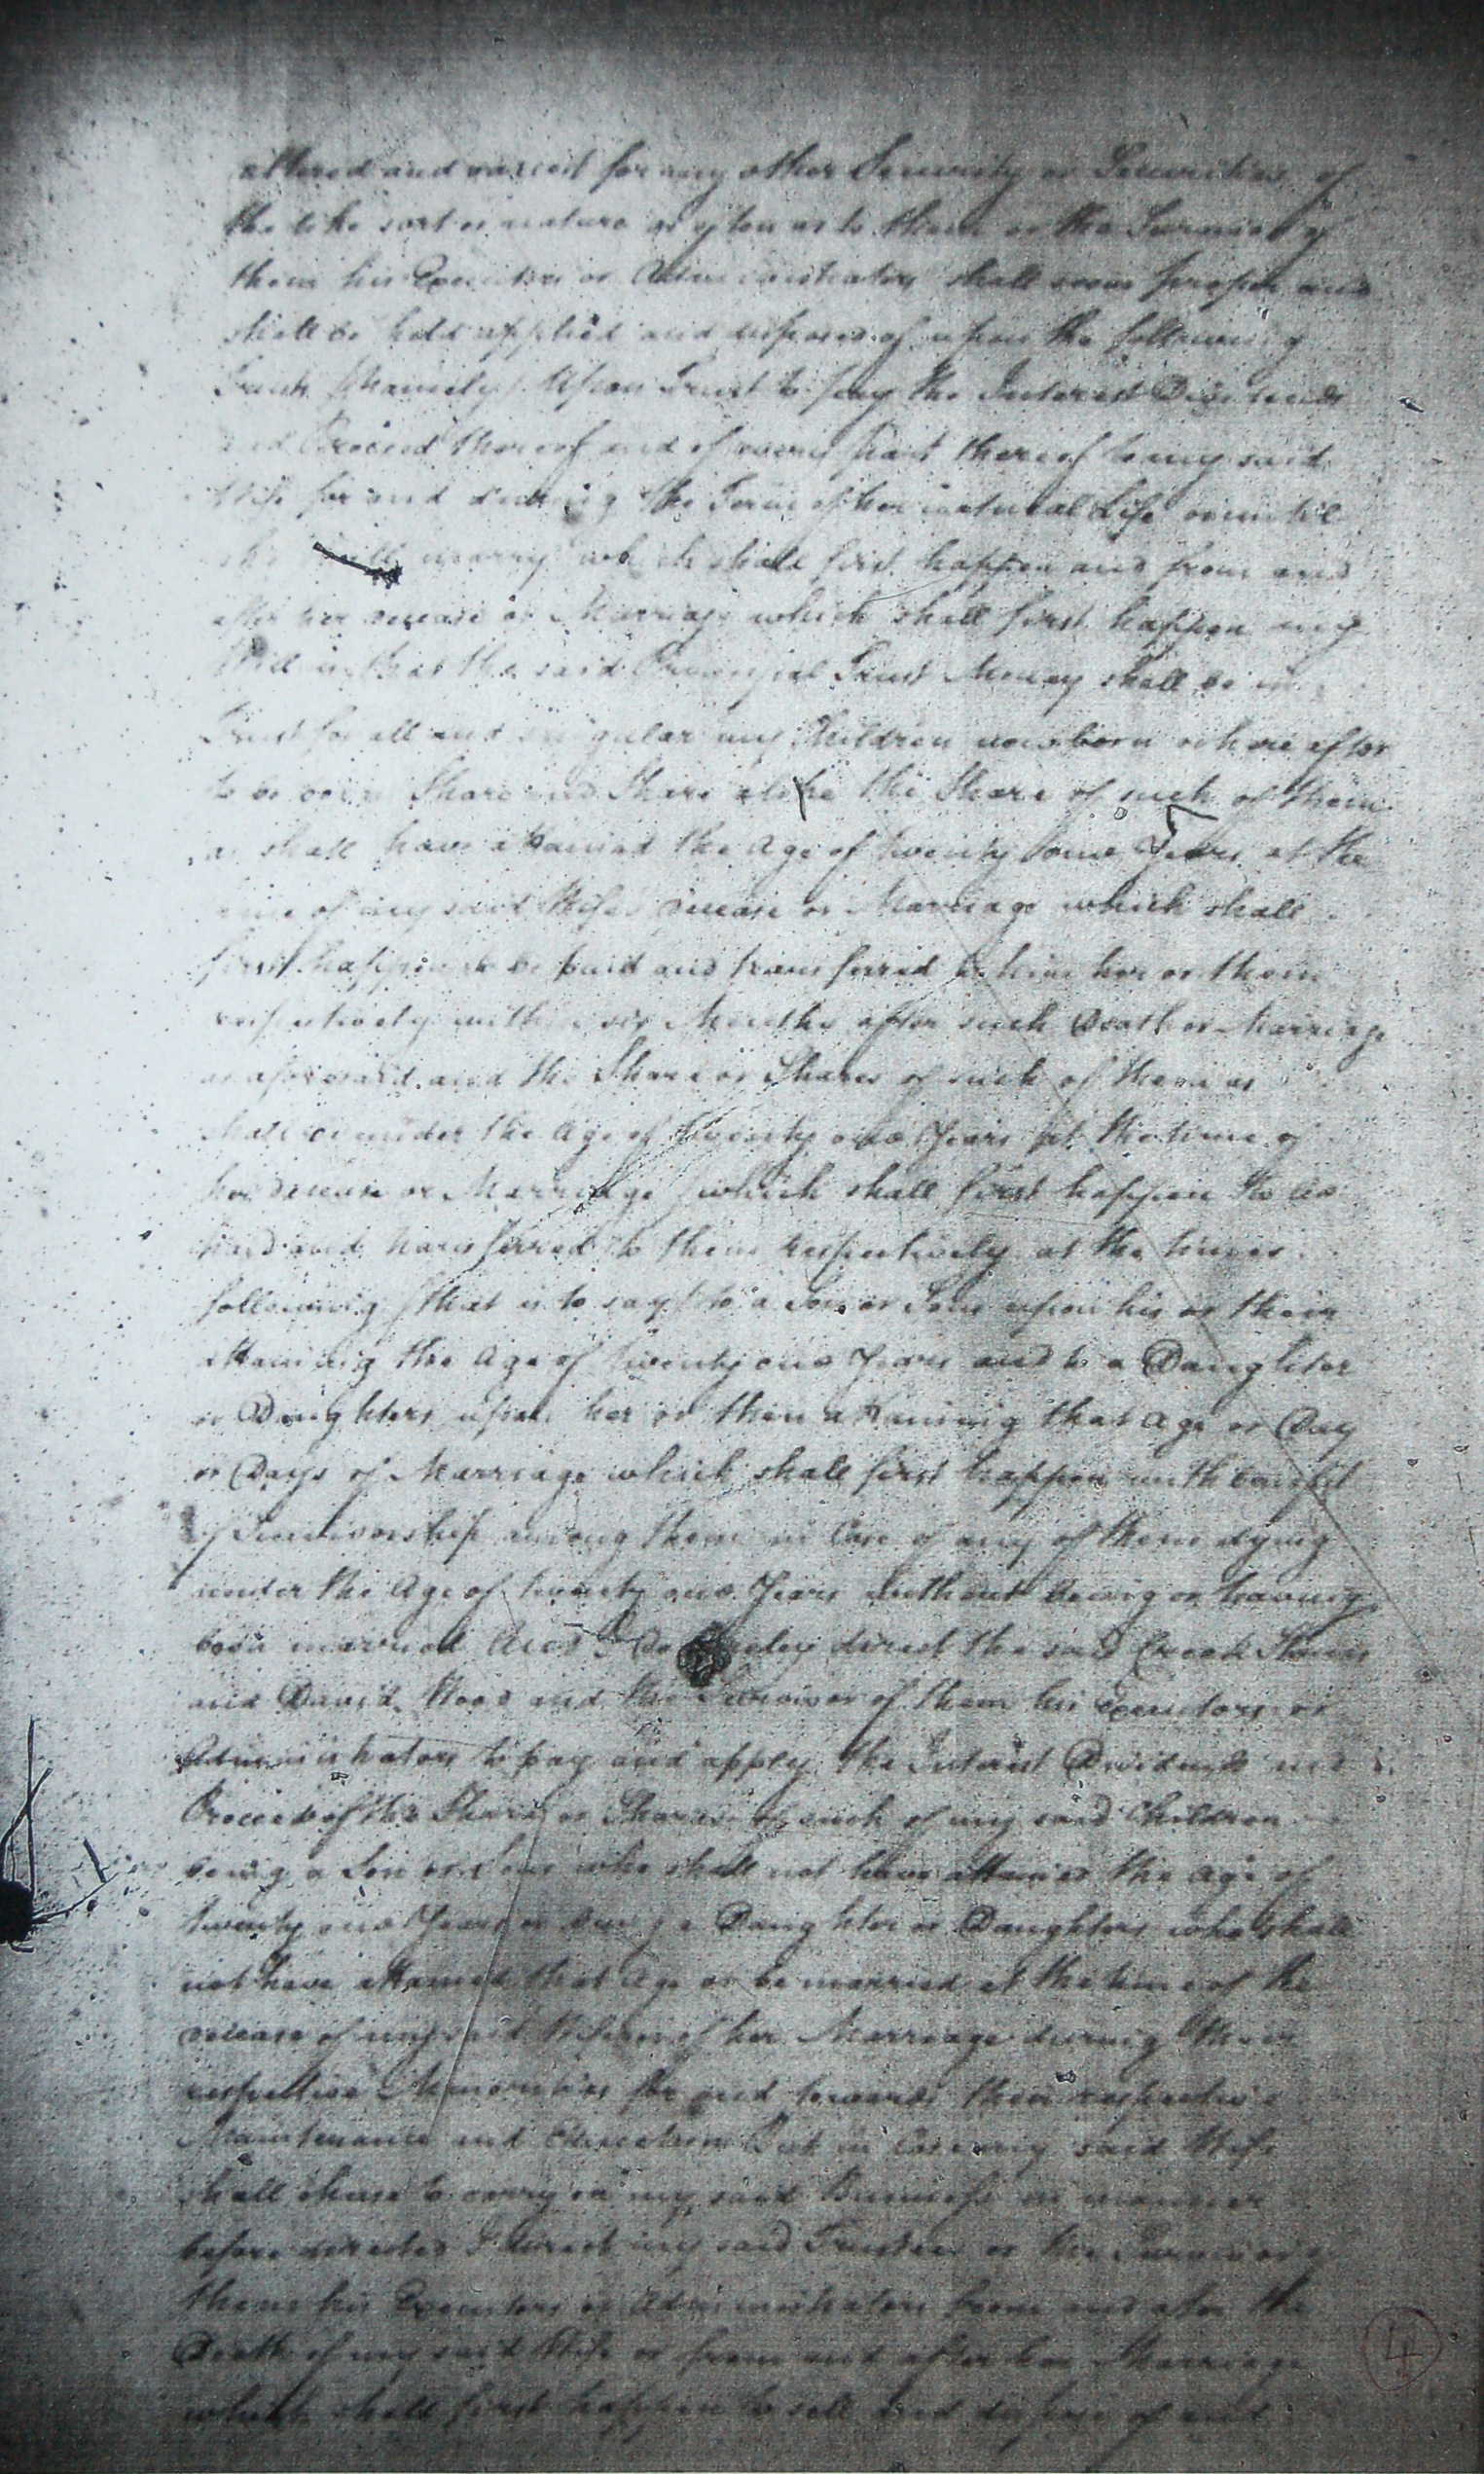 altered and varied for any other Security or Securities of
the like sort or nature as often as to them or the Survivor of
them his Executors or Administrators shall seem proper and
shall be held applied and disposed of upon the following
Trusts (Namely) Upon Trust to pay the Interest Dividends
and Proceed thereof and of every part thereof to my said
Wife for and during the Term of her natural Life or until
she shall marry which shall first happen and from and
after her decease or Marriage which shall first happen my
Will is that the said Principal Trust Money shall be in
Trust for all and singular my Children now born or hereafter
to be born Share and Share alike the Share of such of them
as shall have attained the Age of twenty one Years at the
time of my said Wifes decease or Marriage which shall
first happen to be paid and transferred to him her or them
respectively within six Months after such Death or Marriage
as aforesaid and the Share or Shares of such of them as
shall be under the Age of twenty one Years at the time of
her decease or Marriage which shall first happen to be
paid and transferred to them respectively at the times
following (that is to say) to a Son or Sons upon his or their
attaining the Age of twenty one Years and to a Daughter
or Daughters upon her or their attaining that Age or Day
or Days of Marriage which shall first happen with benefit
of Survivorship among them in Case of any of them dying
under the Age of twenty one Years without being or having
been married And I Do hereby direct the said Crook
and David and the Survivor of them his Executors or
Administrators to pay and apply the Interest Dividends and
Proceeds of the Share or Shares of such of my said Children
being a Son or Sons who shall not have attained the Age of
twenty one Years or being a Daughter or Daughters who shall
not have attained that Age or be married at the time of the
decease of my said Wife or of her Marriage during their
respective Minorities for and towards their respective
Maintenance and Education But in Case my said Wife
shall chuse to carry on my said Business in manner
before directed I direct my said Trustees or the Survivor of
them his Executors or Administrators from and after the
Death of my said Wife or from and after her Marriage
which shall first happen to sell and dispose of and
4